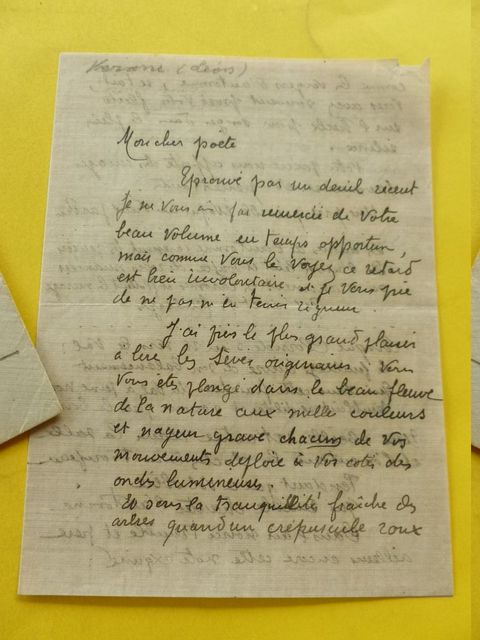 Verane (Léon)
Mon cher poète
Eprouvé par un deuil récent
Je ne vous ai pas remercié de votre
beau volume en temps opportun,
mais comme vous le voyez ce retard
est bien involontaire et je vous prie
de ne pas m'en tenir rigueur.
J'ai pris le plus grand plaisir
a lire les Sèves originaires. Vous
vous etes plongé dans le beau fleuve
de la nature aux mille couleurs
et nageur grave chacun de vos
mouvements deploie à vos cotés des
ondes lumineuses.
Et sous la tranquillité fraîche des
arbres quand un crépuscule roux